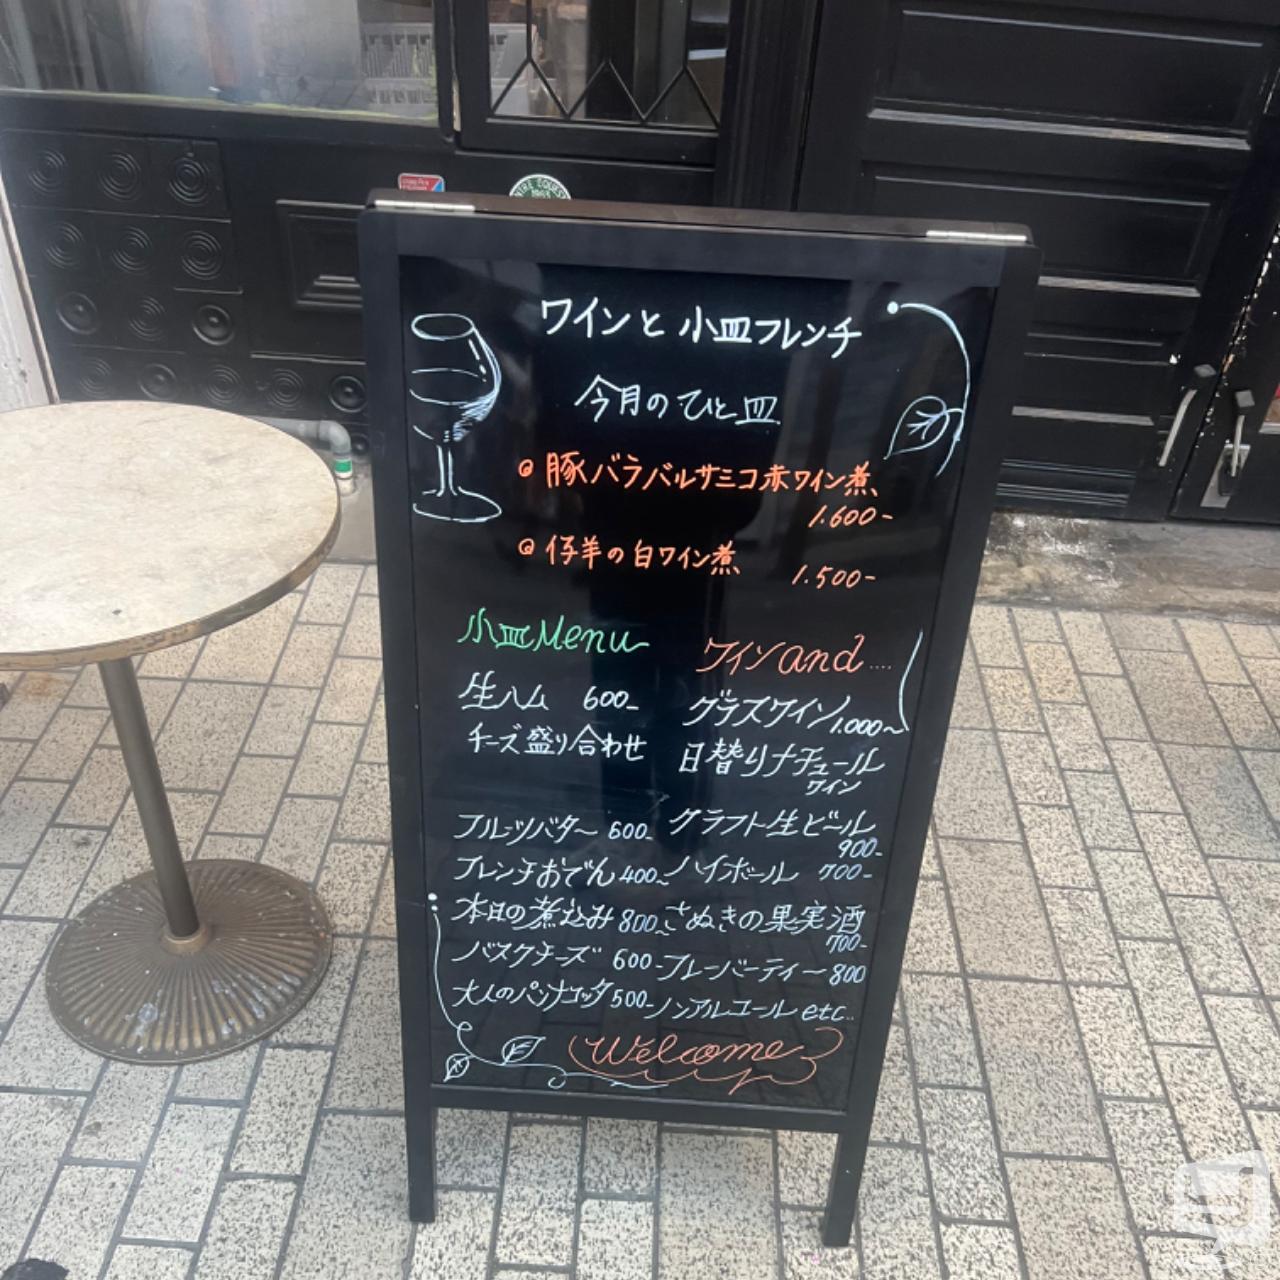 ワインと小皿フレンチ
今月のひと皿
豚バラバルサミコ赤ワイン煮
1.600-
仔羊の白ワイン煮 1.500-
小皿Menu
生ハム 600-
チーズ盛り合わせ
フルーツバター 600-
フレンチおでん 400~
本日の煮込み 800~
バスクチーズ 600-
大人のパンナコッタ 500-
ワインand....
グラスワイン 1.000~
日替りナチュール
ワイン
クラフト生ビール
900-
ハイボール 700-
さぬきの果実酒
700-
フレーバーティー 800
ノンアルコール etc..
Welcome